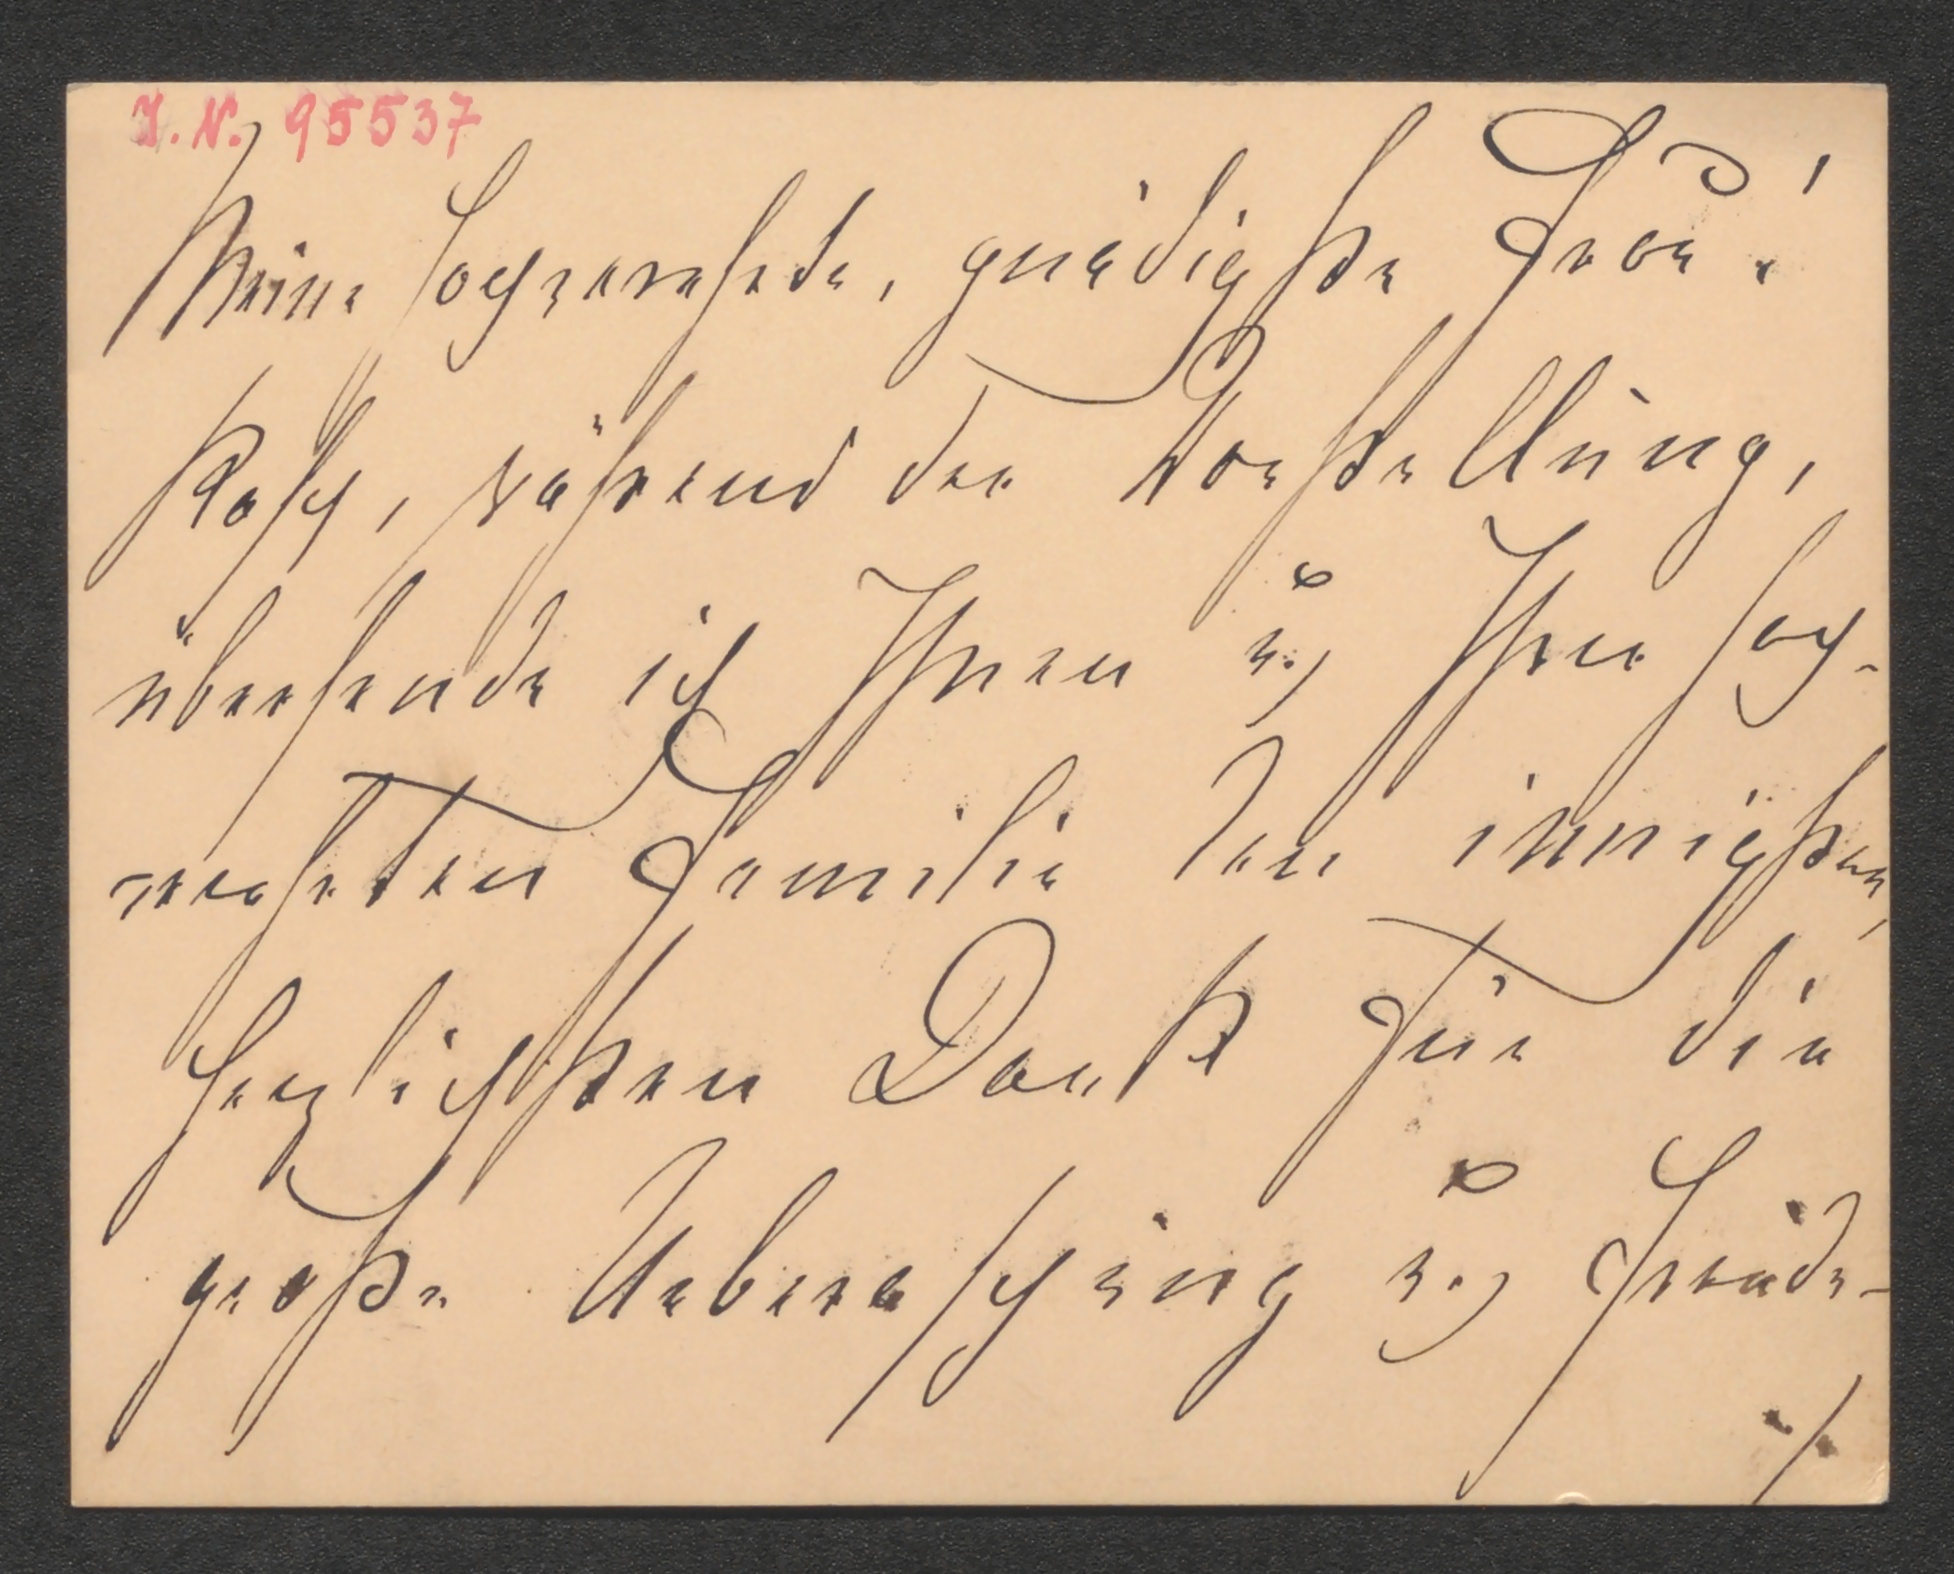 I. N. 95537
Meine hochverehrte, gnädigste Frau!
Rasch, während der Vorstellung,
übersende ich Ihnen u. Ihrer hoch-
verehrten Familie den innigsten,
herzlichsten Dank für die
große Ueberraschung u. Freude
./.